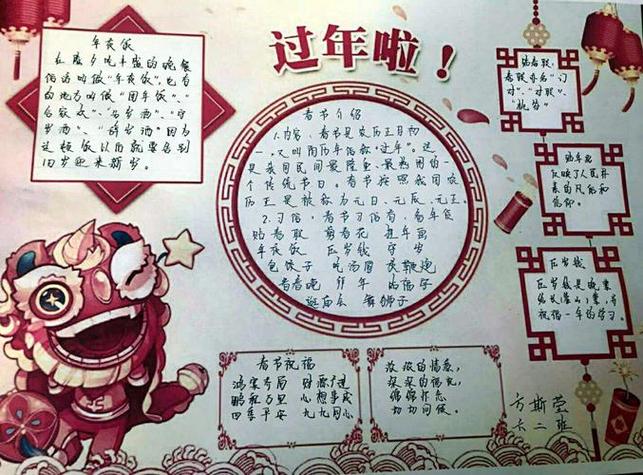 过年啦！
年夜饭
在除夕吃丰盛的晚餐
俗话叫做“年夜饭”，也有
的地方叫做“团年饭”、“
合家欢”、“
岁酒”、“辞岁酒”因为
这顿饭以后就要告别
旧岁迎来新岁。
春节介绍
1.内容，春节是农历正月初
一，又叫阴历年俗称“过年”。这
是我国民间最隆重、最热闹的一
个传统节日。春节按照我国农
历正是被称为元日、元辰、元正、
2.习俗，春节习俗有，备年货
贴春联 剪窗花 挂年画
年夜饭 压岁钱 守岁
包饺子 吃汤圆 放鞭炮
看春晚 拜年 贴福字
逛庙会 舞狮子
贴春联，
春联亦名“门
对”、“对联”、
“桃符”
贴年画
反映了人民朴
素的风俗和
信仰。
压岁钱
压岁钱是晚辈
给长辈，
祝福一年的学习。
春节祝福
鸿案齐眉 财源广进
鹏程万里 心想事成
四季平安 九九同心
浓浓的情意，
深深的祝礼，
绵绵
切切问候。
方斯莹
六二班